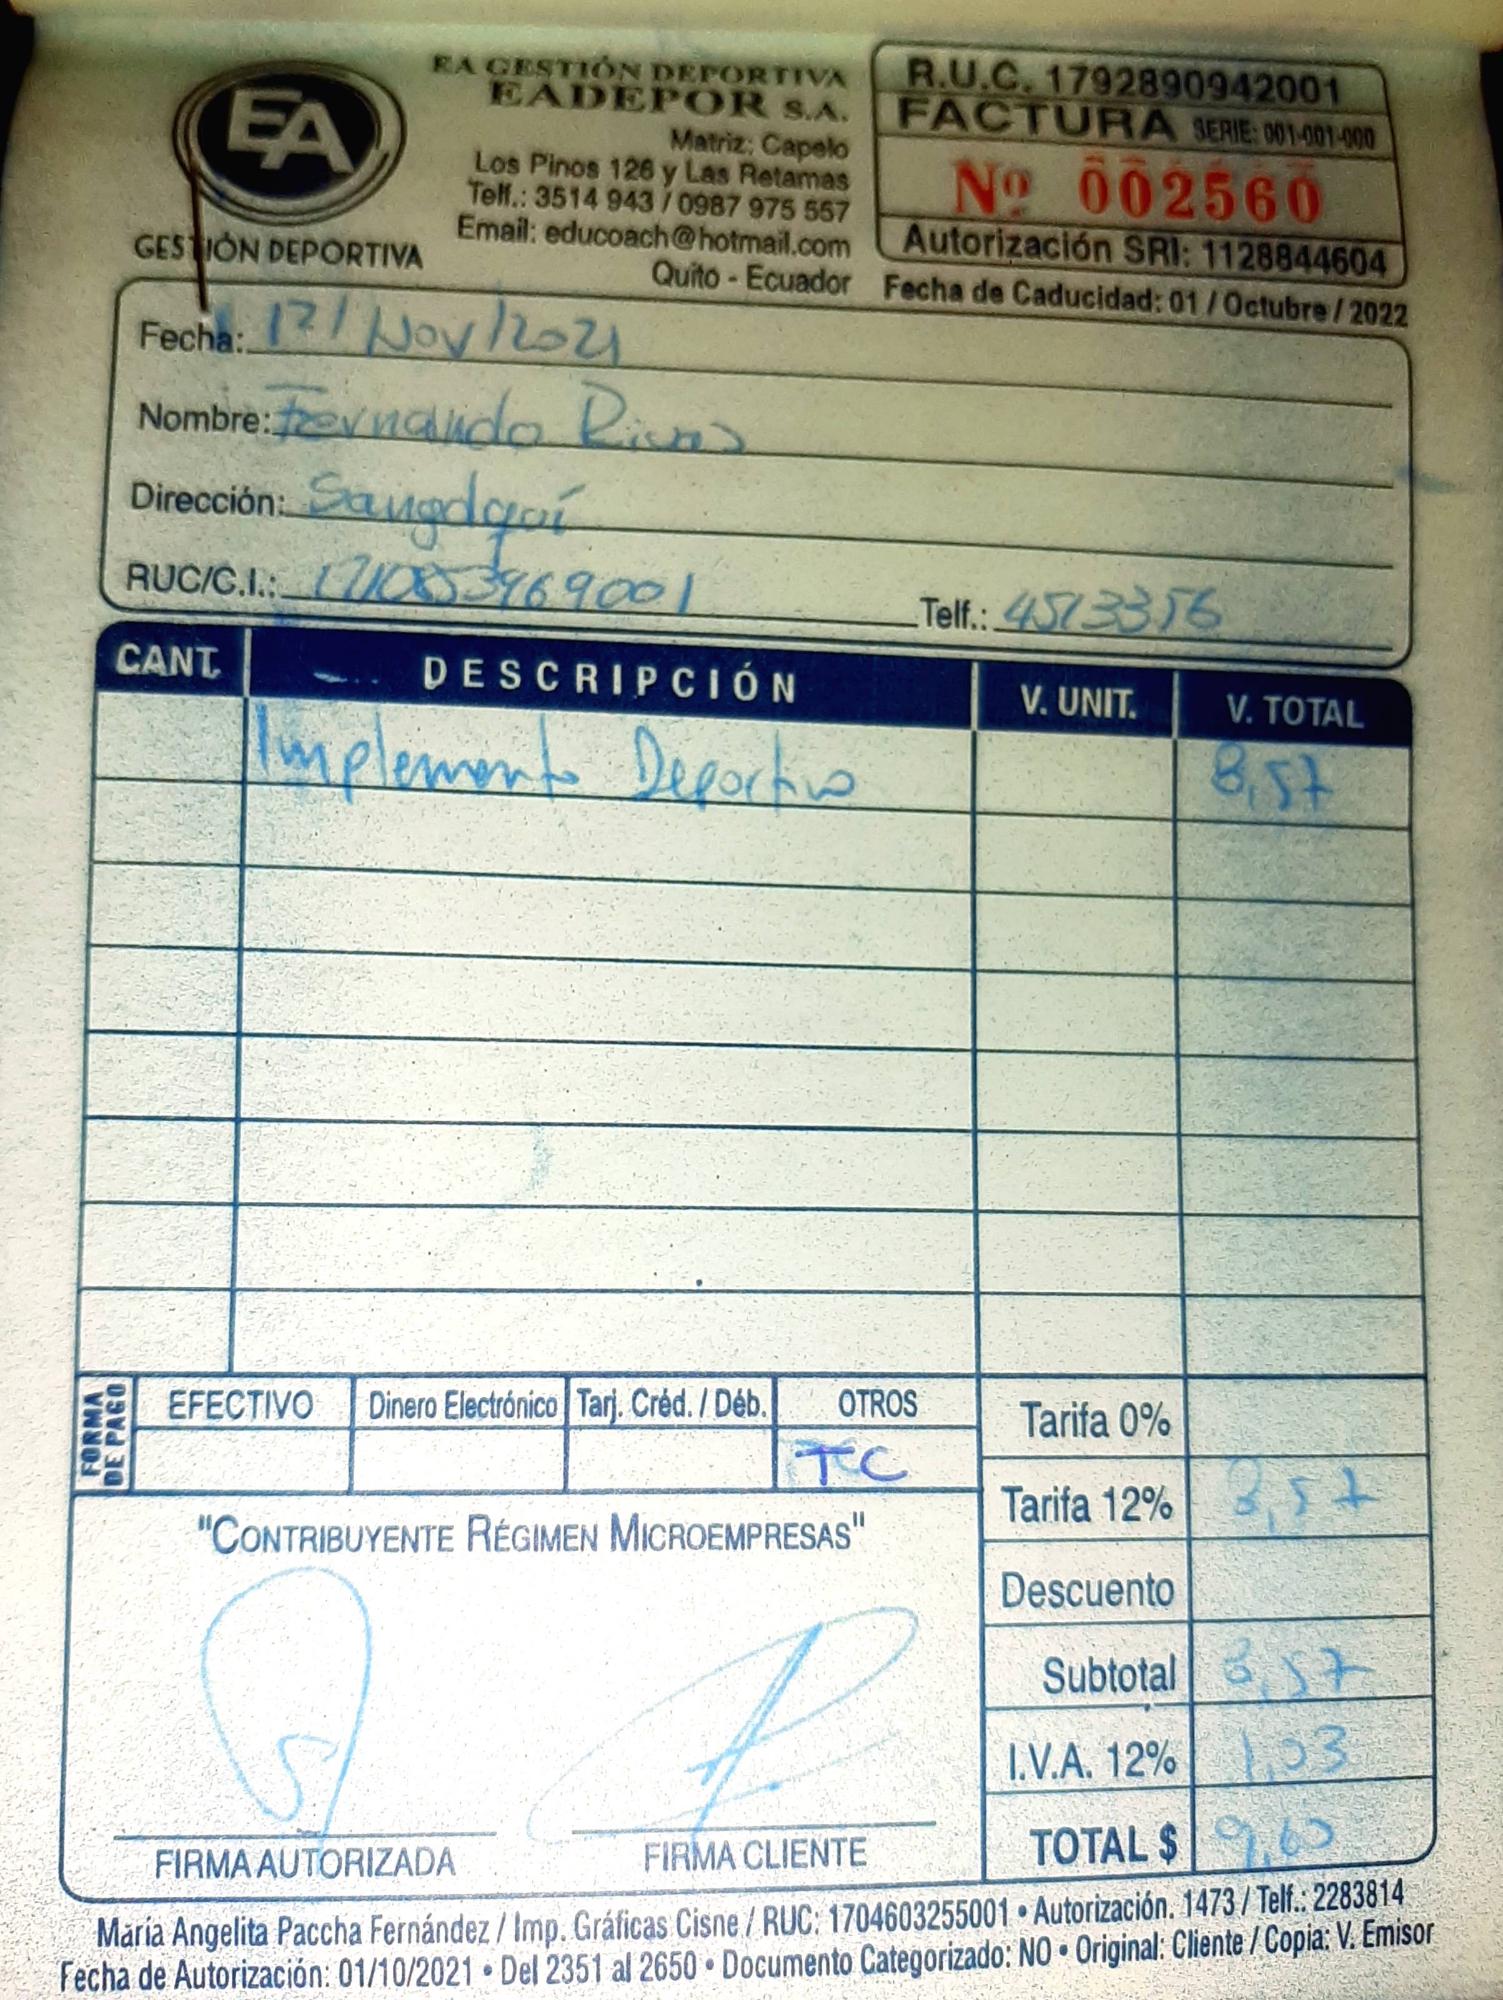 EA
GESTIÓN DEPORTIVA
EA GESTIÓN DEPORTIVA
EADEPOR S.A.
Matriz: Capelo
Los Pinos 126 y Las Retamas
Telf.: 3514 943 / 0987 975 557
Email: educoach@hotmail.com
Quito - Ecuador
R.U.C. 1792890942001
FACTURA SERIE: 001-001-000
Nº 002560
Autorización SRI: 1128844604
Fecha de Caducidad: 01 / Octubre / 2022
Fecha: 17/Nov/2021
Nombre: Fernando Rivas
Dirección: Sangolquí
RUC/C.I.: Telf.: 4513356
CANT. DESCRIPCIÓN V. UNIT. V. TOTAL
Implemento Deportivo 8,57
FORMA DE PAGO
EFECTIVO Dinero Electrónico Tarj. Créd. / Déb. OTROS
TC
Tarifa 0%
Tarifa 12% 8,57
Descuento
Subtotal 8,57
I.V.A. 12% 1,03
TOTAL $ 9,60
"CONTRIBUYENTE RÉGIMEN MICROEMPRESAS"
FIRMA AUTORIZADA FIRMA CLIENTE
María Angelita Paccha Fernández / Imp. Gráficas Cisne / RUC: 1704603255001 • Autorización. 1473 / Telf.: 2283814
Fecha de Autorización: 01/10/2021 • Del 2351 al 2650 • Documento Categorizado: NO • Original: Cliente / Copia: V. Emisor